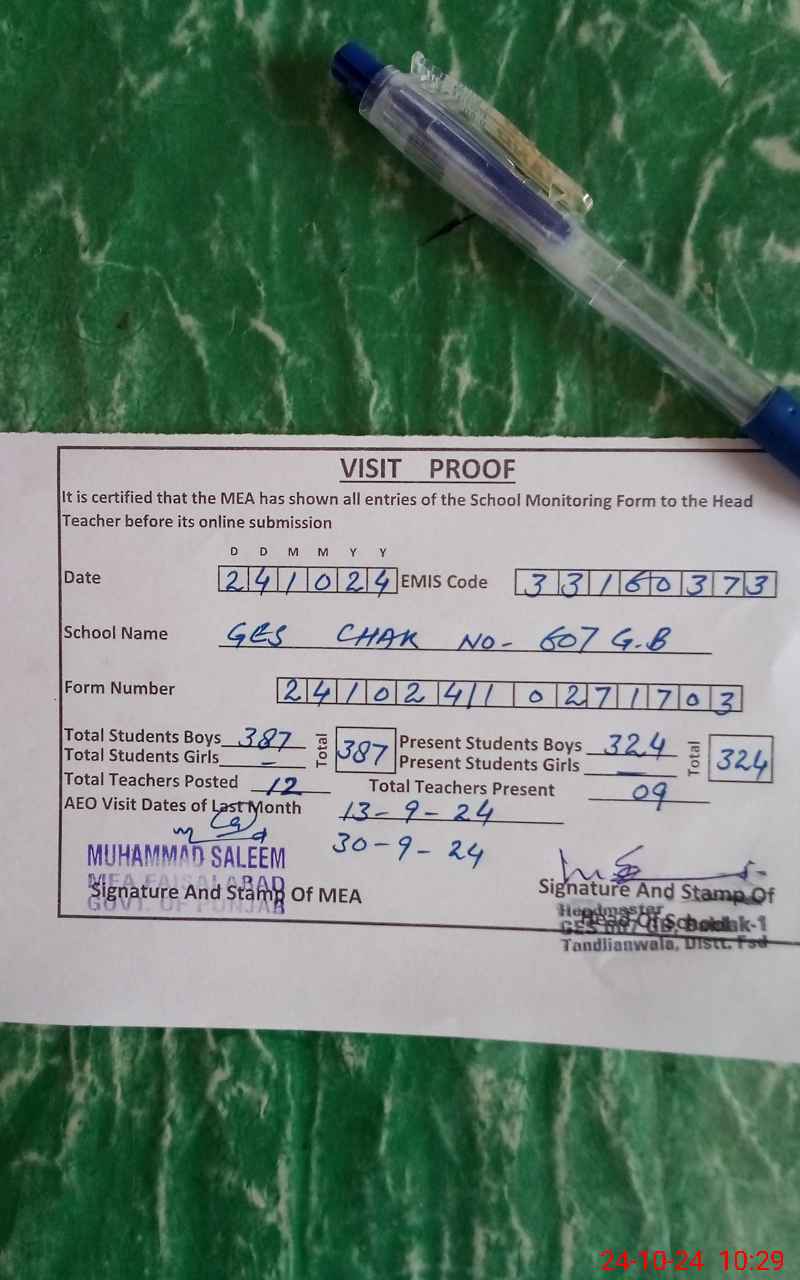 VISIT PROOF
It is certified that the MEA has shown all entries of the School Monitoring Form to the Head
Teacher before its online submission
D D M M Y Y
Date 241024 EMIS Code 33160373
School Name GES CHAK NO- 607 G.B
Form Number 241024110271703
Total Students Boys 387 Total 387 Present Students Boys 324 Total 324
Total Students Girls - Present Students Girls -
Total Teachers Posted 12 Total Teachers Present 09
AEO Visit Dates of Last Month 13-9-24
30-9-24
MUHAMMAD SALEEM
MEA FAISALABAD
GOVT. OF PUNJAB
Signature And Stamp Of MEA
Signature And Stamp Of
Head Of School
Headmaster
GES 607 GB,
Tandlianwala, Distt. Fsd
24-10-24 10:29